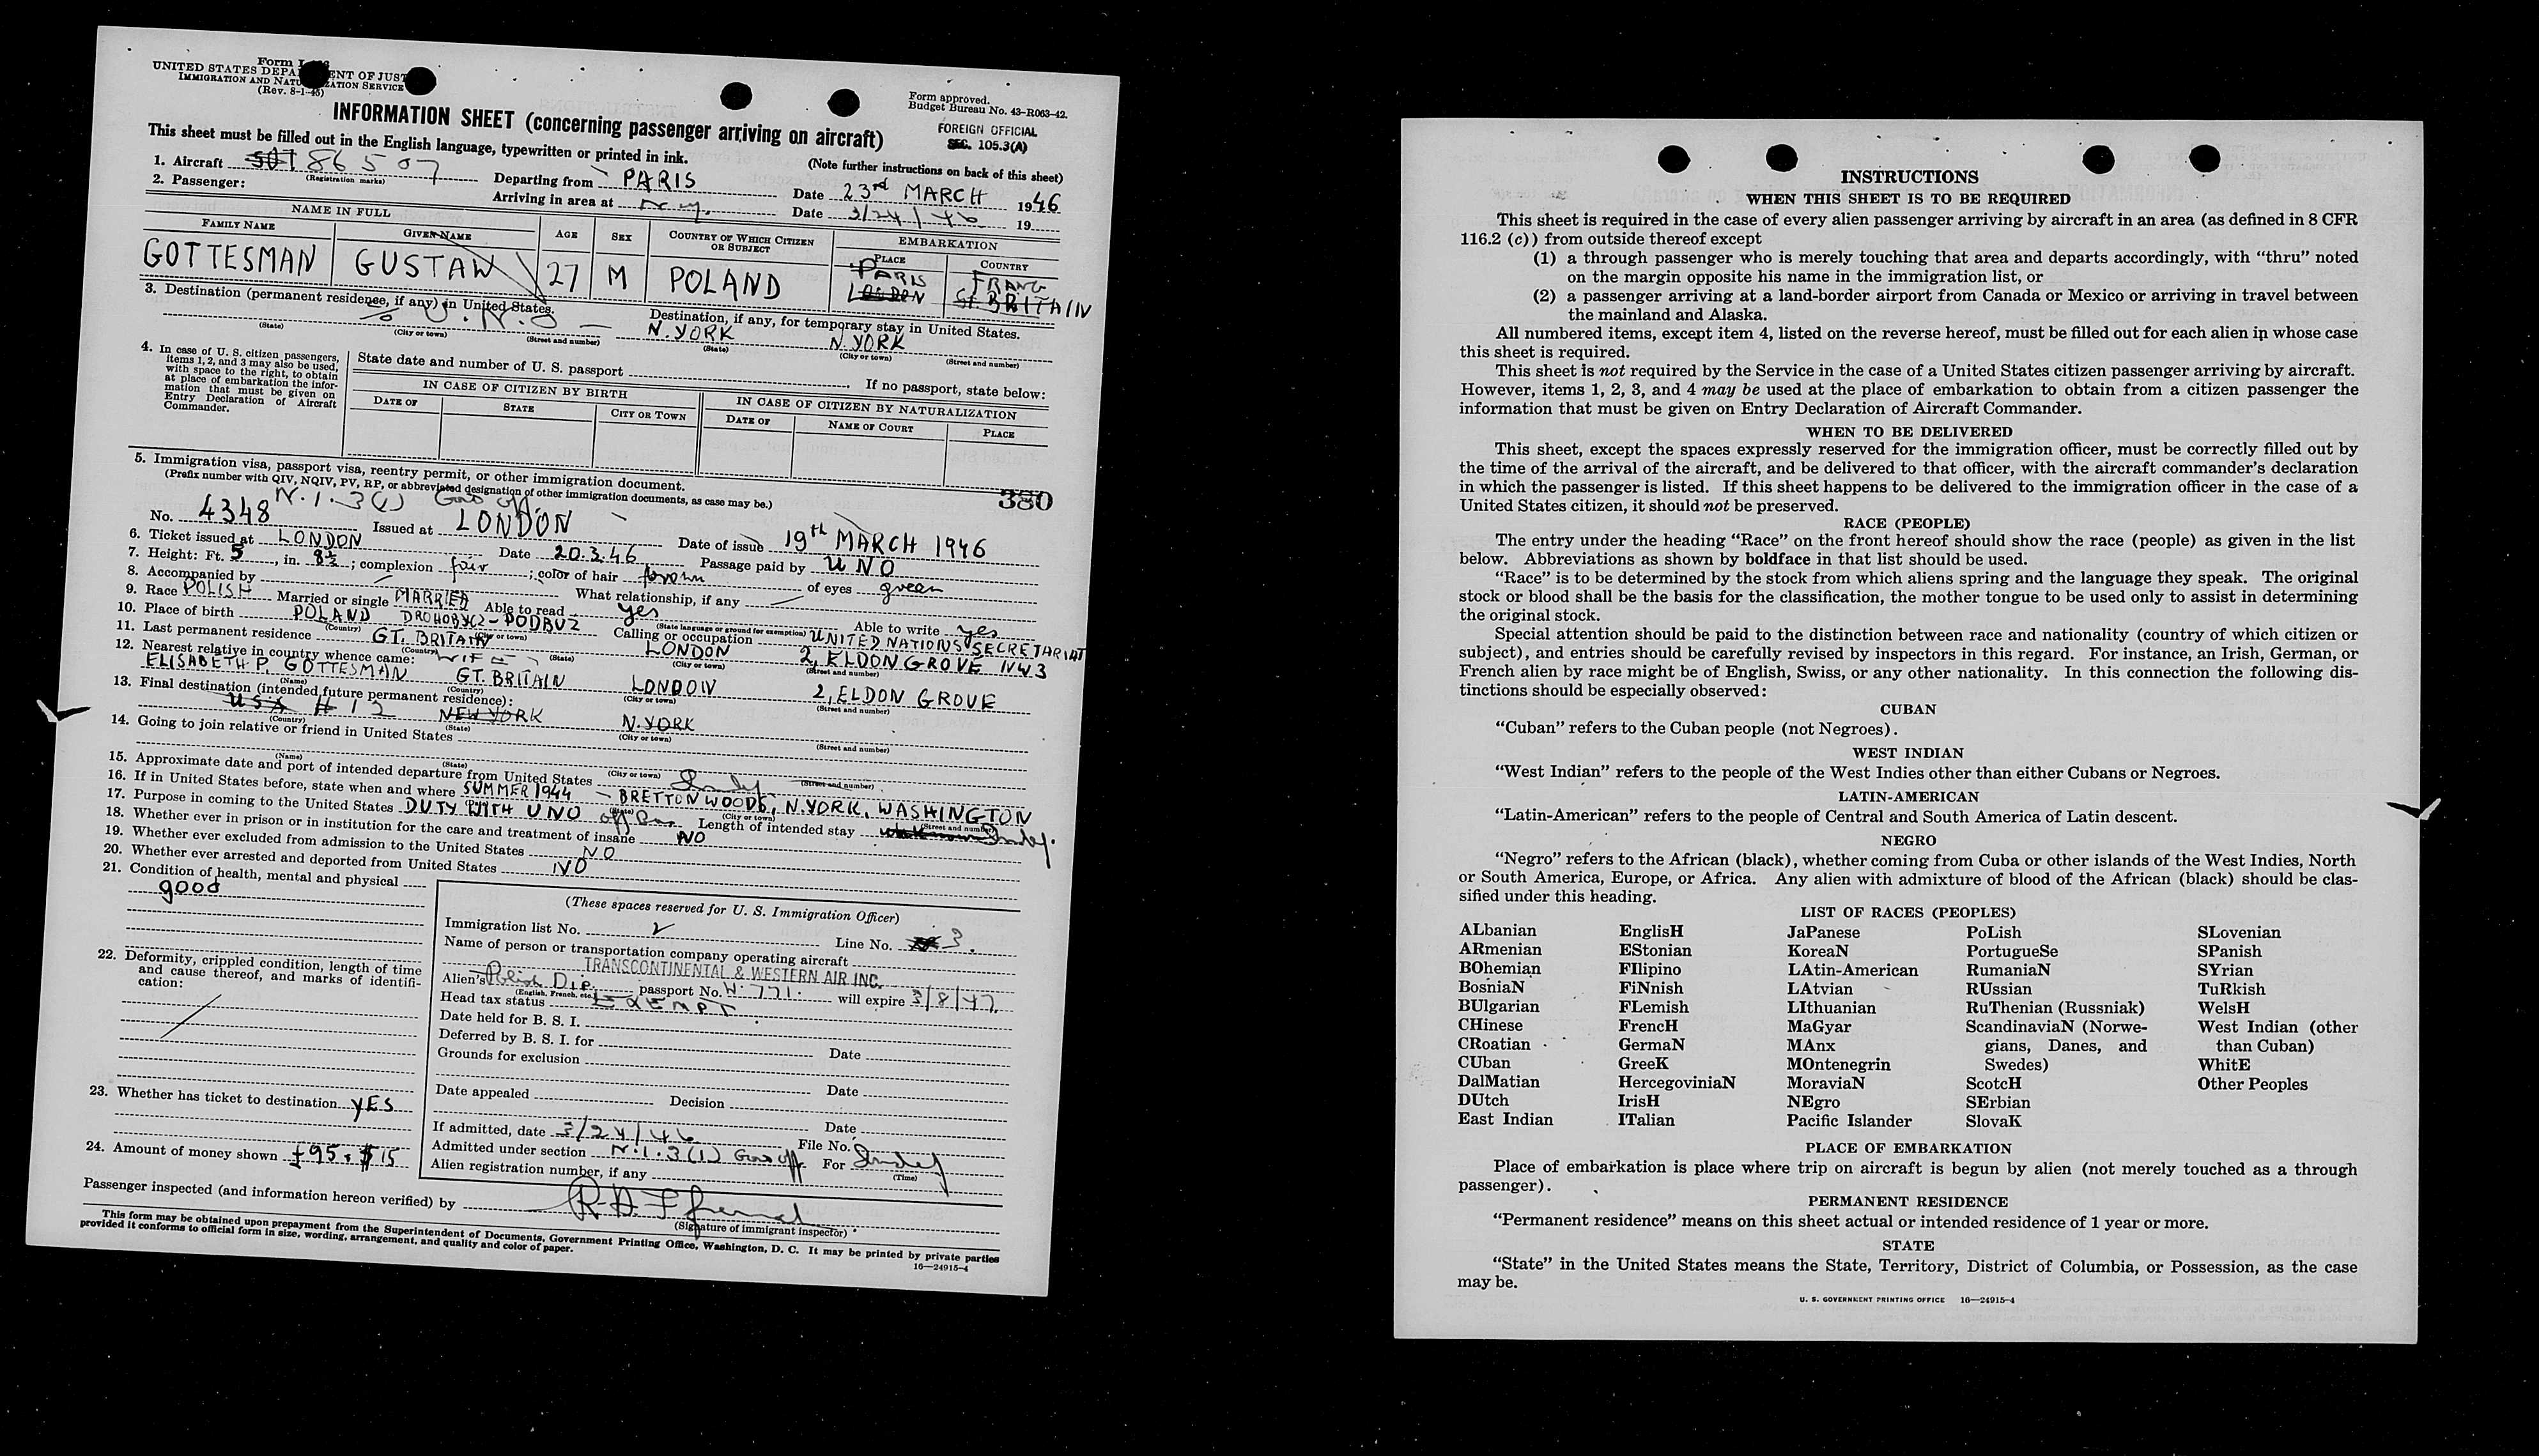 Form I-
UNITED STATES DEPA ENT OF JUST
IMMIGRATION AND NATU ZATION SERVICE
(Rev. 8-1-45)
Form approved.
Budget Bureau No. 43-R063-42.
INFORMATION SHEET (concerning passenger arriving on aircraft)
FOREIGN OFFICIAL
SEC. 105.3(A)
This sheet must be filled out in the English language, typewritten or printed in ink.
(Note further instructions on back of this sheet)
1. Aircraft 86507 Departing from PARIS Date 23rd MARCH 1946
(Registration marks)
2. Passenger: Arriving in area at N.Y. Date 3/24/46 19
NAME IN FULL
FAMILY NAME GIVEN NAME AGE SEX COUNTRY OF WHICH CITIZEN OR SUBJECT EMBARKATION
PLACE COUNTRY
GOTTESMAN GUSTAW 27 M POLAND PARIS FRANC
LONDON GT. BRITAIN
3. Destination (permanent residence, if any) in United States. Destination, if any, for temporary stay in United States.
% U.N.O — N. YORK N. YORK
(State) (City or town) (Street and number) (State) (City or town) (Street and number)
4. In case of U. S. citizen passengers, items 1, 2, and 3 may also be used, with space to the right, to obtain at place of embarkation the information that must be given on Entry Declaration of Aircraft Commander.
State date and number of U. S. passport If no passport, state below:
IN CASE OF CITIZEN BY BIRTH IN CASE OF CITIZEN BY NATURALIZATION
DATE OF STATE CITY OR TOWN DATE OF NAME OF COURT PLACE
5. Immigration visa, passport visa, reentry permit, or other immigration document.
(Prefix number with QIV, NQIV, PV, RP, or abbreviated designation of other immigration documents, as case may be.)
380
N.1.3(1) Gov off.
No. 4348 Issued at LONDON Date of issue 19th MARCH 1946
6. Ticket issued at LONDON Date 20.3.46 Passage paid by UNO
7. Height: Ft. 5, in. 8½; complexion fair; color of hair brown of eyes green
8. Accompanied by — What relationship, if any —
9. Race POLISH Married or single MARRIED Able to read yes Able to write yes
(State language or ground for exemption)
10. Place of birth POLAND DROHOBYCZ-PODBUZ Calling or occupation UNITED NATIONS SECRETARIAT
(Country) (City or town)
11. Last permanent residence GT. BRITAIN LONDON 2, ELDON GROVE NW3
(Country) (State) (City or town) (Street and number)
12. Nearest relative in country whence came: WIFE
ELISABETH P. GOTTESMAN GT. BRITAIN LONDON 2, ELDON GROVE
(Name) (Country) (City or town) (Street and number)
13. Final destination (intended future permanent residence):
USA # 12 NEW YORK N. YORK
(Country) (State) (City or town) (Street and number)
14. Going to join relative or friend in United States
(Name) (State) (City or town) (Street and number)
15. Approximate date and port of intended departure from United States Indef
16. If in United States before, state when and where SUMMER 1944 – BRETTON WOODS, N. YORK, WASHINGTON
(State) (City or town) (Street and number)
17. Purpose in coming to the United States DUTY WITH UNO Length of intended stay unknown Indef.
18. Whether ever in prison or in institution for the care and treatment of insane NO
19. Whether ever excluded from admission to the United States NO
20. Whether ever arrested and deported from United States NO
21. Condition of health, mental and physical
good
(These spaces reserved for U. S. Immigration Officer)
Immigration list No. 2 Line No. 3.
Name of person or transportation company operating aircraft
TRANSCONTINENTAL & WESTERN AIR INC.
22. Deformity, crippled condition, length of time and cause thereof, and marks of identification:
Alien's Polish Dip. passport No. W. 771. will expire 3/8/47.
(English, French, etc.)
Head tax status EXEMPT.
Date held for B. S. I.
Deferred by B. S. I. for Date
Grounds for exclusion
Date
Date appealed Decision
Date
23. Whether has ticket to destination YES
If admitted, date 3/24/46 File No.
Admitted under section N.1.3(1) Gov off For Indef
(Time)
24. Amount of money shown £95, $15
Alien registration number, if any
Passenger inspected (and information hereon verified) by
(Signature of immigrant inspector)
This form may be obtained upon prepayment from the Superintendent of Documents, Government Printing Office, Washington, D. C. It may be printed by private parties
provided it conforms to official form in size, wording, arrangement, and quality and color of paper.
16—24915-4
INSTRUCTIONS
WHEN THIS SHEET IS TO BE REQUIRED
This sheet is required in the case of every alien passenger arriving by aircraft in an area (as defined in 8 CFR
116.2 (c)) from outside thereof except
(1) a through passenger who is merely touching that area and departs accordingly, with “thru” noted
on the margin opposite his name in the immigration list, or
(2) a passenger arriving at a land-border airport from Canada or Mexico or arriving in travel between
the mainland and Alaska.
All numbered items, except item 4, listed on the reverse hereof, must be filled out for each alien in whose case
this sheet is required.
This sheet is not required by the Service in the case of a United States citizen passenger arriving by aircraft.
However, items 1, 2, 3, and 4 may be used at the place of embarkation to obtain from a citizen passenger the
information that must be given on Entry Declaration of Aircraft Commander.
WHEN TO BE DELIVERED
This sheet, except the spaces expressly reserved for the immigration officer, must be correctly filled out by
the time of the arrival of the aircraft, and be delivered to that officer, with the aircraft commander's declaration
in which the passenger is listed. If this sheet happens to be delivered to the immigration officer in the case of a
United States citizen, it should not be preserved.
RACE (PEOPLE)
The entry under the heading “Race” on the front hereof should show the race (people) as given in the list
below. Abbreviations as shown by boldface in that list should be used.
“Race” is to be determined by the stock from which aliens spring and the language they speak. The original
stock or blood shall be the basis for the classification, the mother tongue to be used only to assist in determining
the original stock.
Special attention should be paid to the distinction between race and nationality (country of which citizen or
subject), and entries should be carefully revised by inspectors in this regard. For instance, an Irish, German, or
French alien by race might be of English, Swiss, or any other nationality. In this connection the following dis-
tinctions should be especially observed:
CUBAN
“Cuban” refers to the Cuban people (not Negroes).
WEST INDIAN
“West Indian” refers to the people of the West Indies other than either Cubans or Negroes.
LATIN-AMERICAN
“Latin-American” refers to the people of Central and South America of Latin descent.
NEGRO
“Negro” refers to the African (black), whether coming from Cuba or other islands of the West Indies, North
or South America, Europe, or Africa. Any alien with admixture of blood of the African (black) should be clas-
sified under this heading.
LIST OF RACES (PEOPLES)
ALbanian EnglisH JaPanese PoLish SLovenian
ARmenian EStonian KoreaN PortugueSe SPanish
BOhemian FIlipino LAtin-American RumaniaN SYrian
BosniaN FiNnish LAtvian RUssian TuRkish
BUlgarian FLemish LIthuanian RuThenian (Russniak) WelsH
CHinese FrencH MaGyar ScandinaviaN (Norwe- West Indian (other
CRoatian GermaN MAnx gians, Danes, and than Cuban)
CUban GreeK MOntenegrin Swedes) WhitE
DalMatian HercegoviniaN MoraviaN ScotcH Other Peoples
DUtch IrisH NEgro SErbian
East Indian ITalian Pacific Islander SlovaK
PLACE OF EMBARKATION
Place of embarkation is place where trip on aircraft is begun by alien (not merely touched as a through
passenger).
PERMANENT RESIDENCE
“Permanent residence” means on this sheet actual or intended residence of 1 year or more.
STATE
“State” in the United States means the State, Territory, District of Columbia, or Possession, as the case
may be.
U. S. GOVERNMENT PRINTING OFFICE 16—24915-4